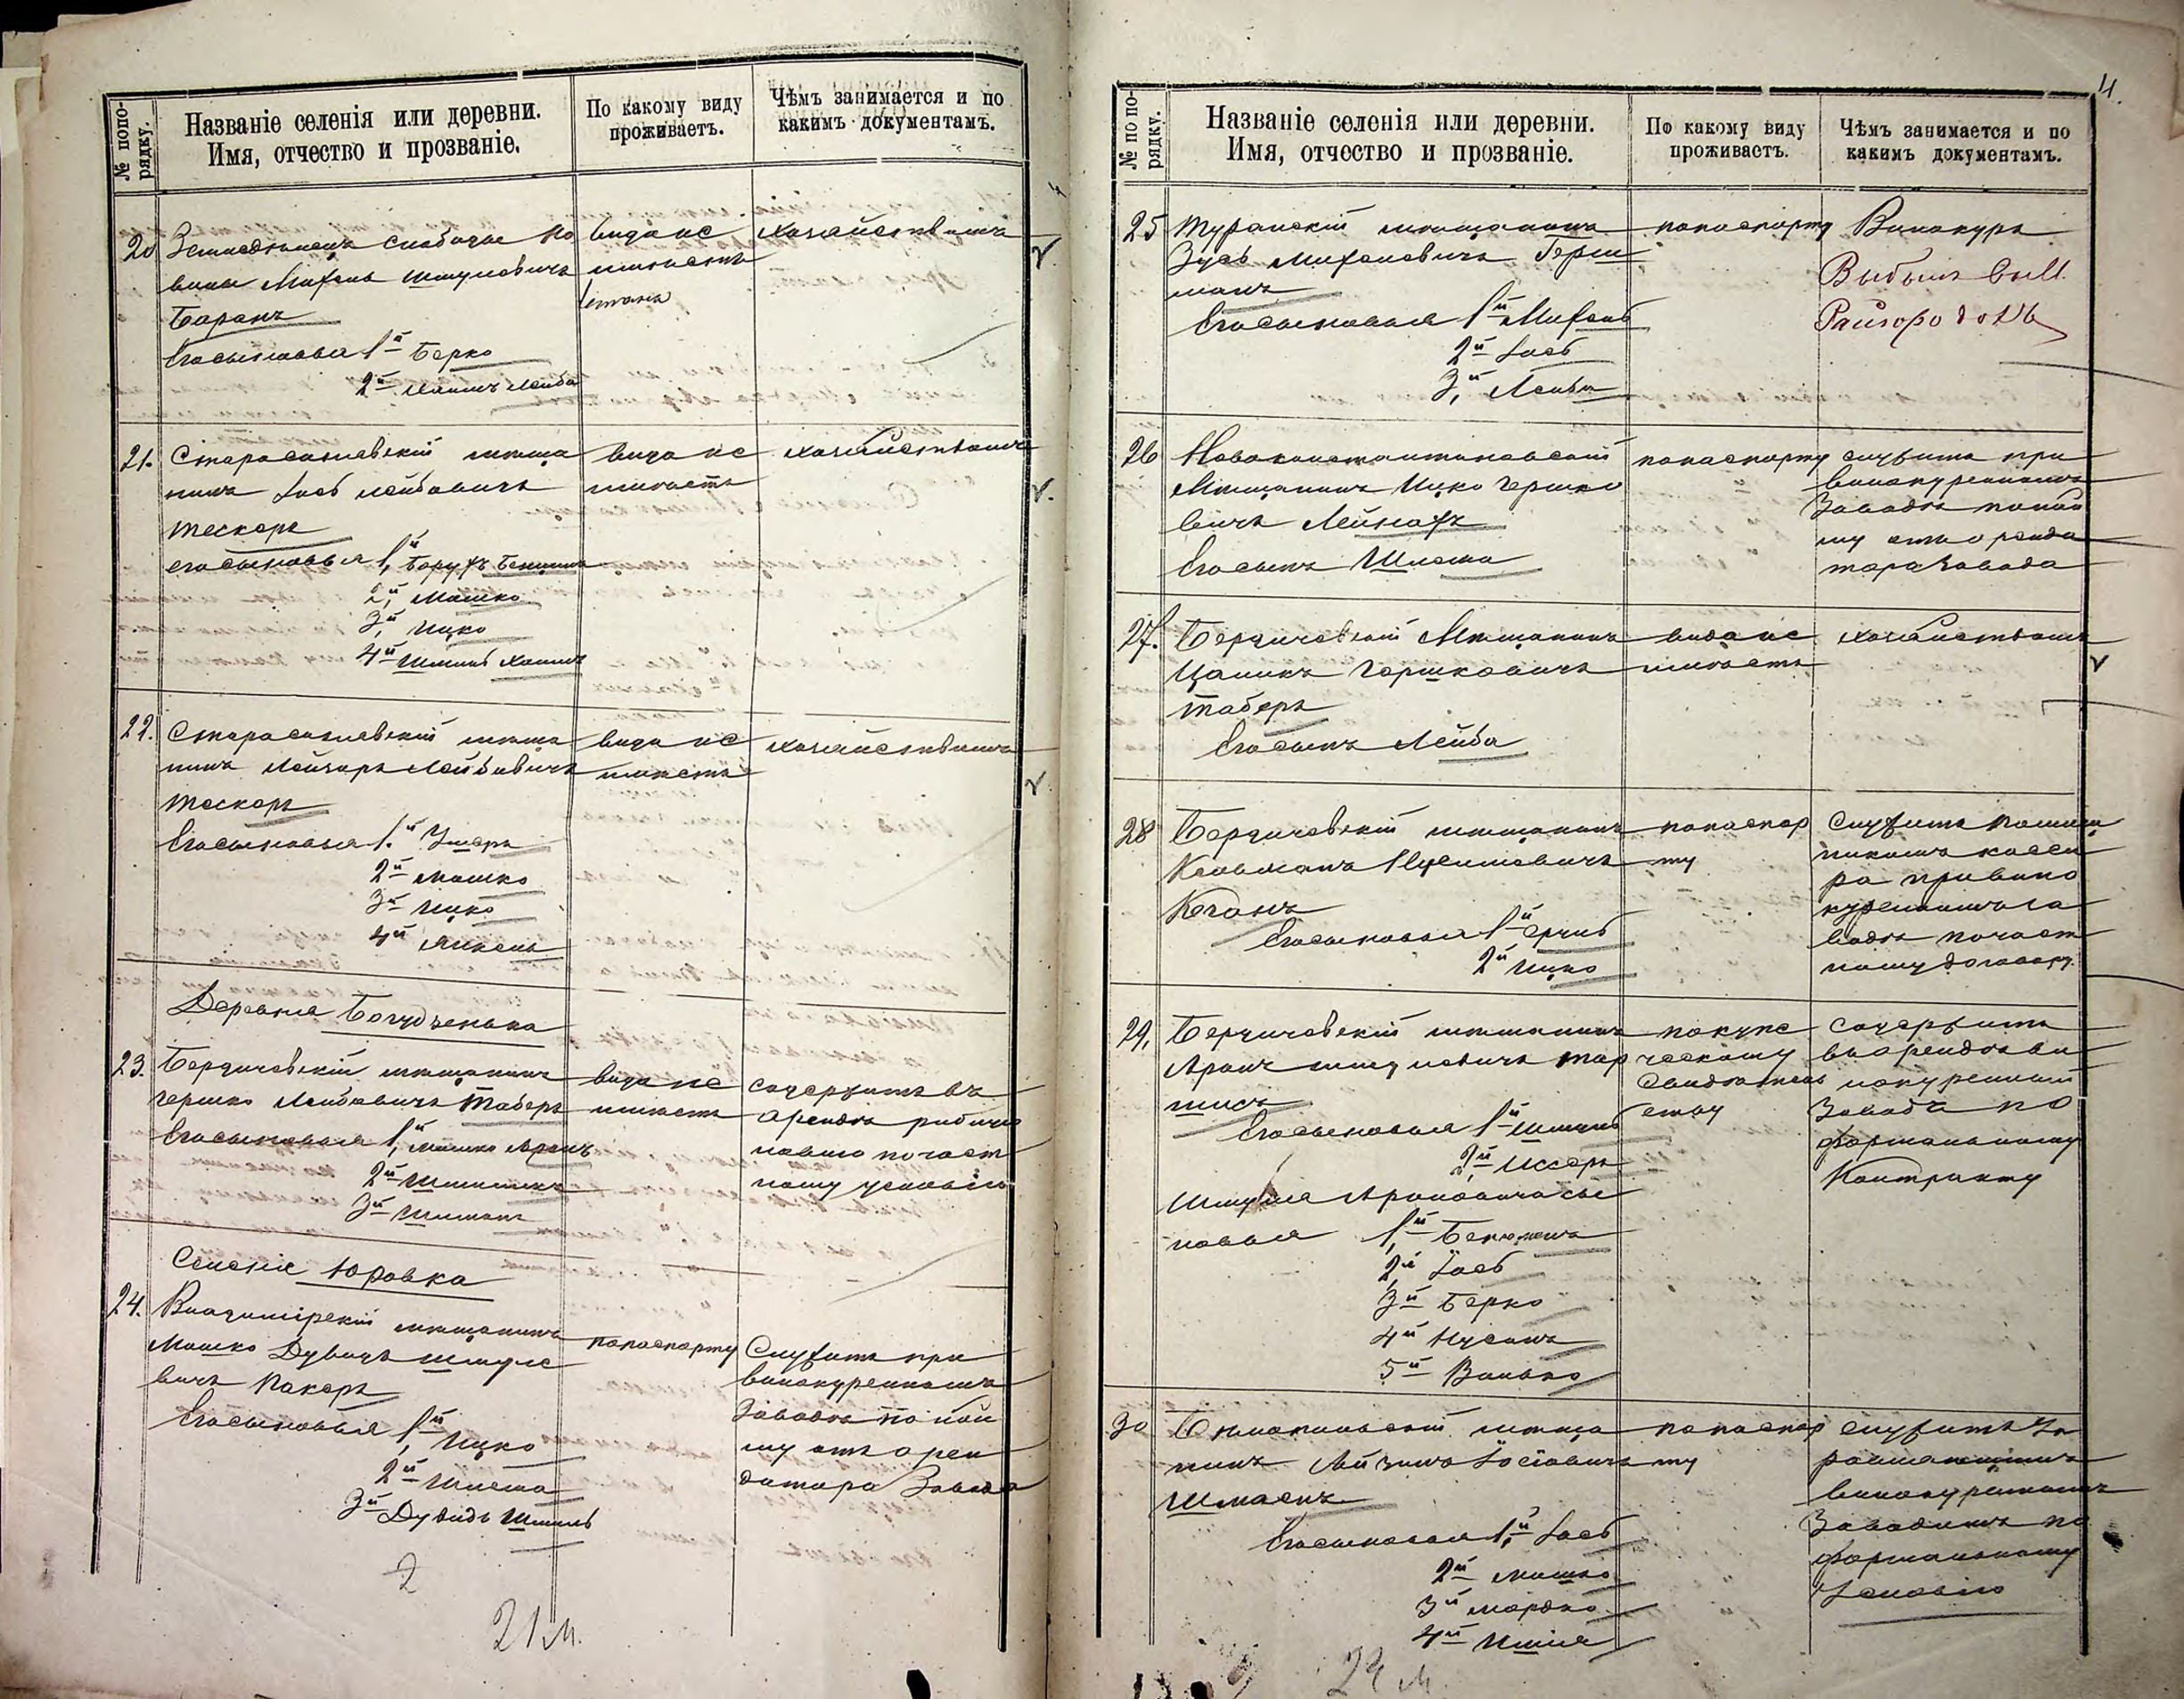 № попо-
рядку.
Названіе селенія или деревни.
Имя, отчество и прозваніе.
По какому виду
проживаетъ.
Чѣмъ занимается и по
какимъ документамъ.
20 Земледѣлецъ слободы Но
вины Михель Шмулевичъ
Баранъ
Его сыновья 1й Берко
2й Хаимъ Лейба
вида не
имѣетъ
хозяйствомъ
21. Старосинявскій мѣща
нинъ Іось Лейбовичъ
Тескеръ
его сыновья 1й Борухъ
2й Мошко
3й Ицко
4й Шмиль Хаимъ
вида не
имѣетъ
хозяйствомъ
22. Старосинявскій мѣща
нинъ Лейзоръ Лейбовичъ
Тескеръ
Его сыновья 1й Ушеръ
2й Мошко
3й Ицко
4й Янкель
вида не
имѣетъ
хозяйствомъ
Деревня
23. Бердичевскій мѣщанинъ
Гершко Лейбовичъ Таберъ
Его сыновья 1й Мошко Аронъ
2й
3й Шлиома
вида не
имѣетъ
содержитъ въ
арендѣ
по част
ному условію
Селеніе Юровка
24. Владимірскій мѣщанинъ
Мошко Дувидъ Шмуле
вичъ Пакеръ
Его сыновья 1й Ицко
2й Шлема
3й Дувидъ Шмиль
паспорту
Служитъ при
винокуренномъ
Заводѣ по най
му отъ арен
датора Завода
2
21 м.
4.
№ по по-
рядку.
Названіе селенія или деревни.
Имя, отчество и прозваніе.
По какому виду
проживаетъ.
Чѣмъ занимается и по
какимъ документамъ.
25 мѣщанинъ
Зусь Михелевичъ Герш
манъ
Его сыновья 1й Михель
2й Іось
3й Лейба
паспорту
Винокуръ
Выбылъ въ м.
Райгородокъ
26 Новоконстантиновскій
Мѣщанинъ Ицко Гершко
вичъ
Его сынъ Шлема
паспорту
служитъ при
винокуренномъ
Заводѣ по най
му отъ аренда
тора Завода
27. Бердичевскій Мѣщанинъ
Цаликъ Гершковичъ
Таберъ
Его сынъ Лейба
вида не
имѣетъ
хозяйствомъ
28 Бердичевскій мѣщанинъ
Кельманъ Нусимовичъ
Коганъ
Его сыновья 1й Срулъ
2й Ицко
паспор
ту
Служитъ помощ
никомъ касси
ра при вино
куренномъ за
водѣ по част
ному договору
29. Бердичевскій мѣщанинъ
Аронъ Шмулевичъ Мар
гулисъ
Его сыновья 1й Шмуль
2й Иссеръ
Шмуля Ароновича сы
новья 1й
2й Іось
3й Берко
4й Нусинъ
5й Волько
по купе
ческому
свидѣтель
ству
содержитъ
въ арендѣ ви
нокуренный
Заводъ по
формальному
Контракту
30 мѣща
нинъ Айзикъ Іосіовичъ
Его сыновья 1й Іось
2й Мошко
3й Мордко
4й
паспор
ту
служитъ Уп
равляющимъ
винокуреннымъ
Заводомъ по
формальному
Условію
24 м.